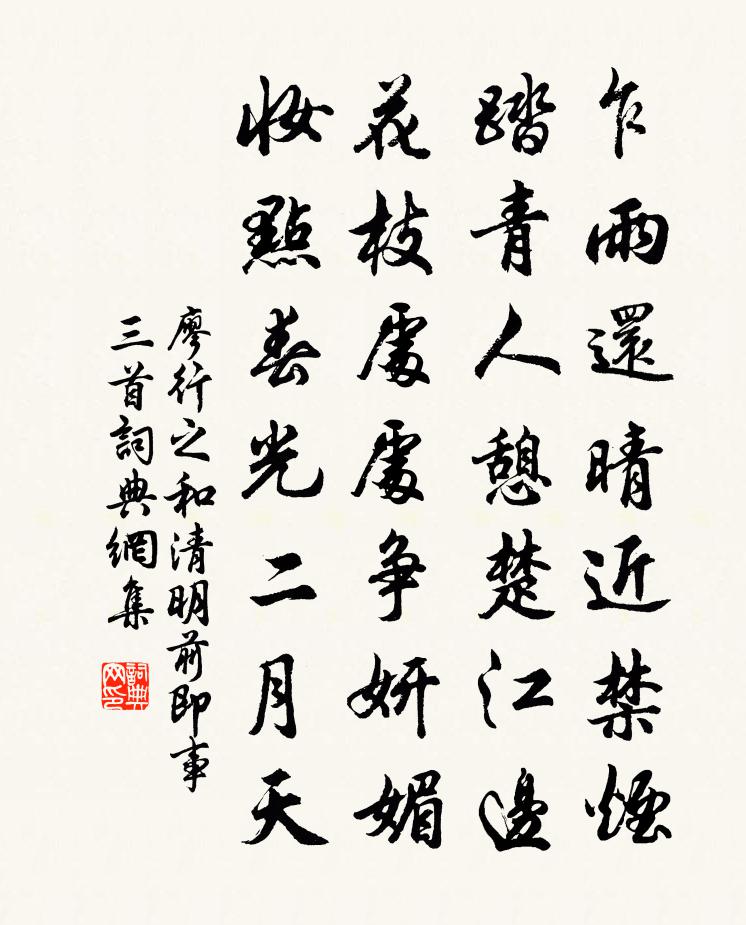 乍雨還晴近禁煙
踏青人憩楚江邊
花枝處處爭妍媚
妝點春光二月天
廖行之和清明前即事
三首詞典網集
詞典網印